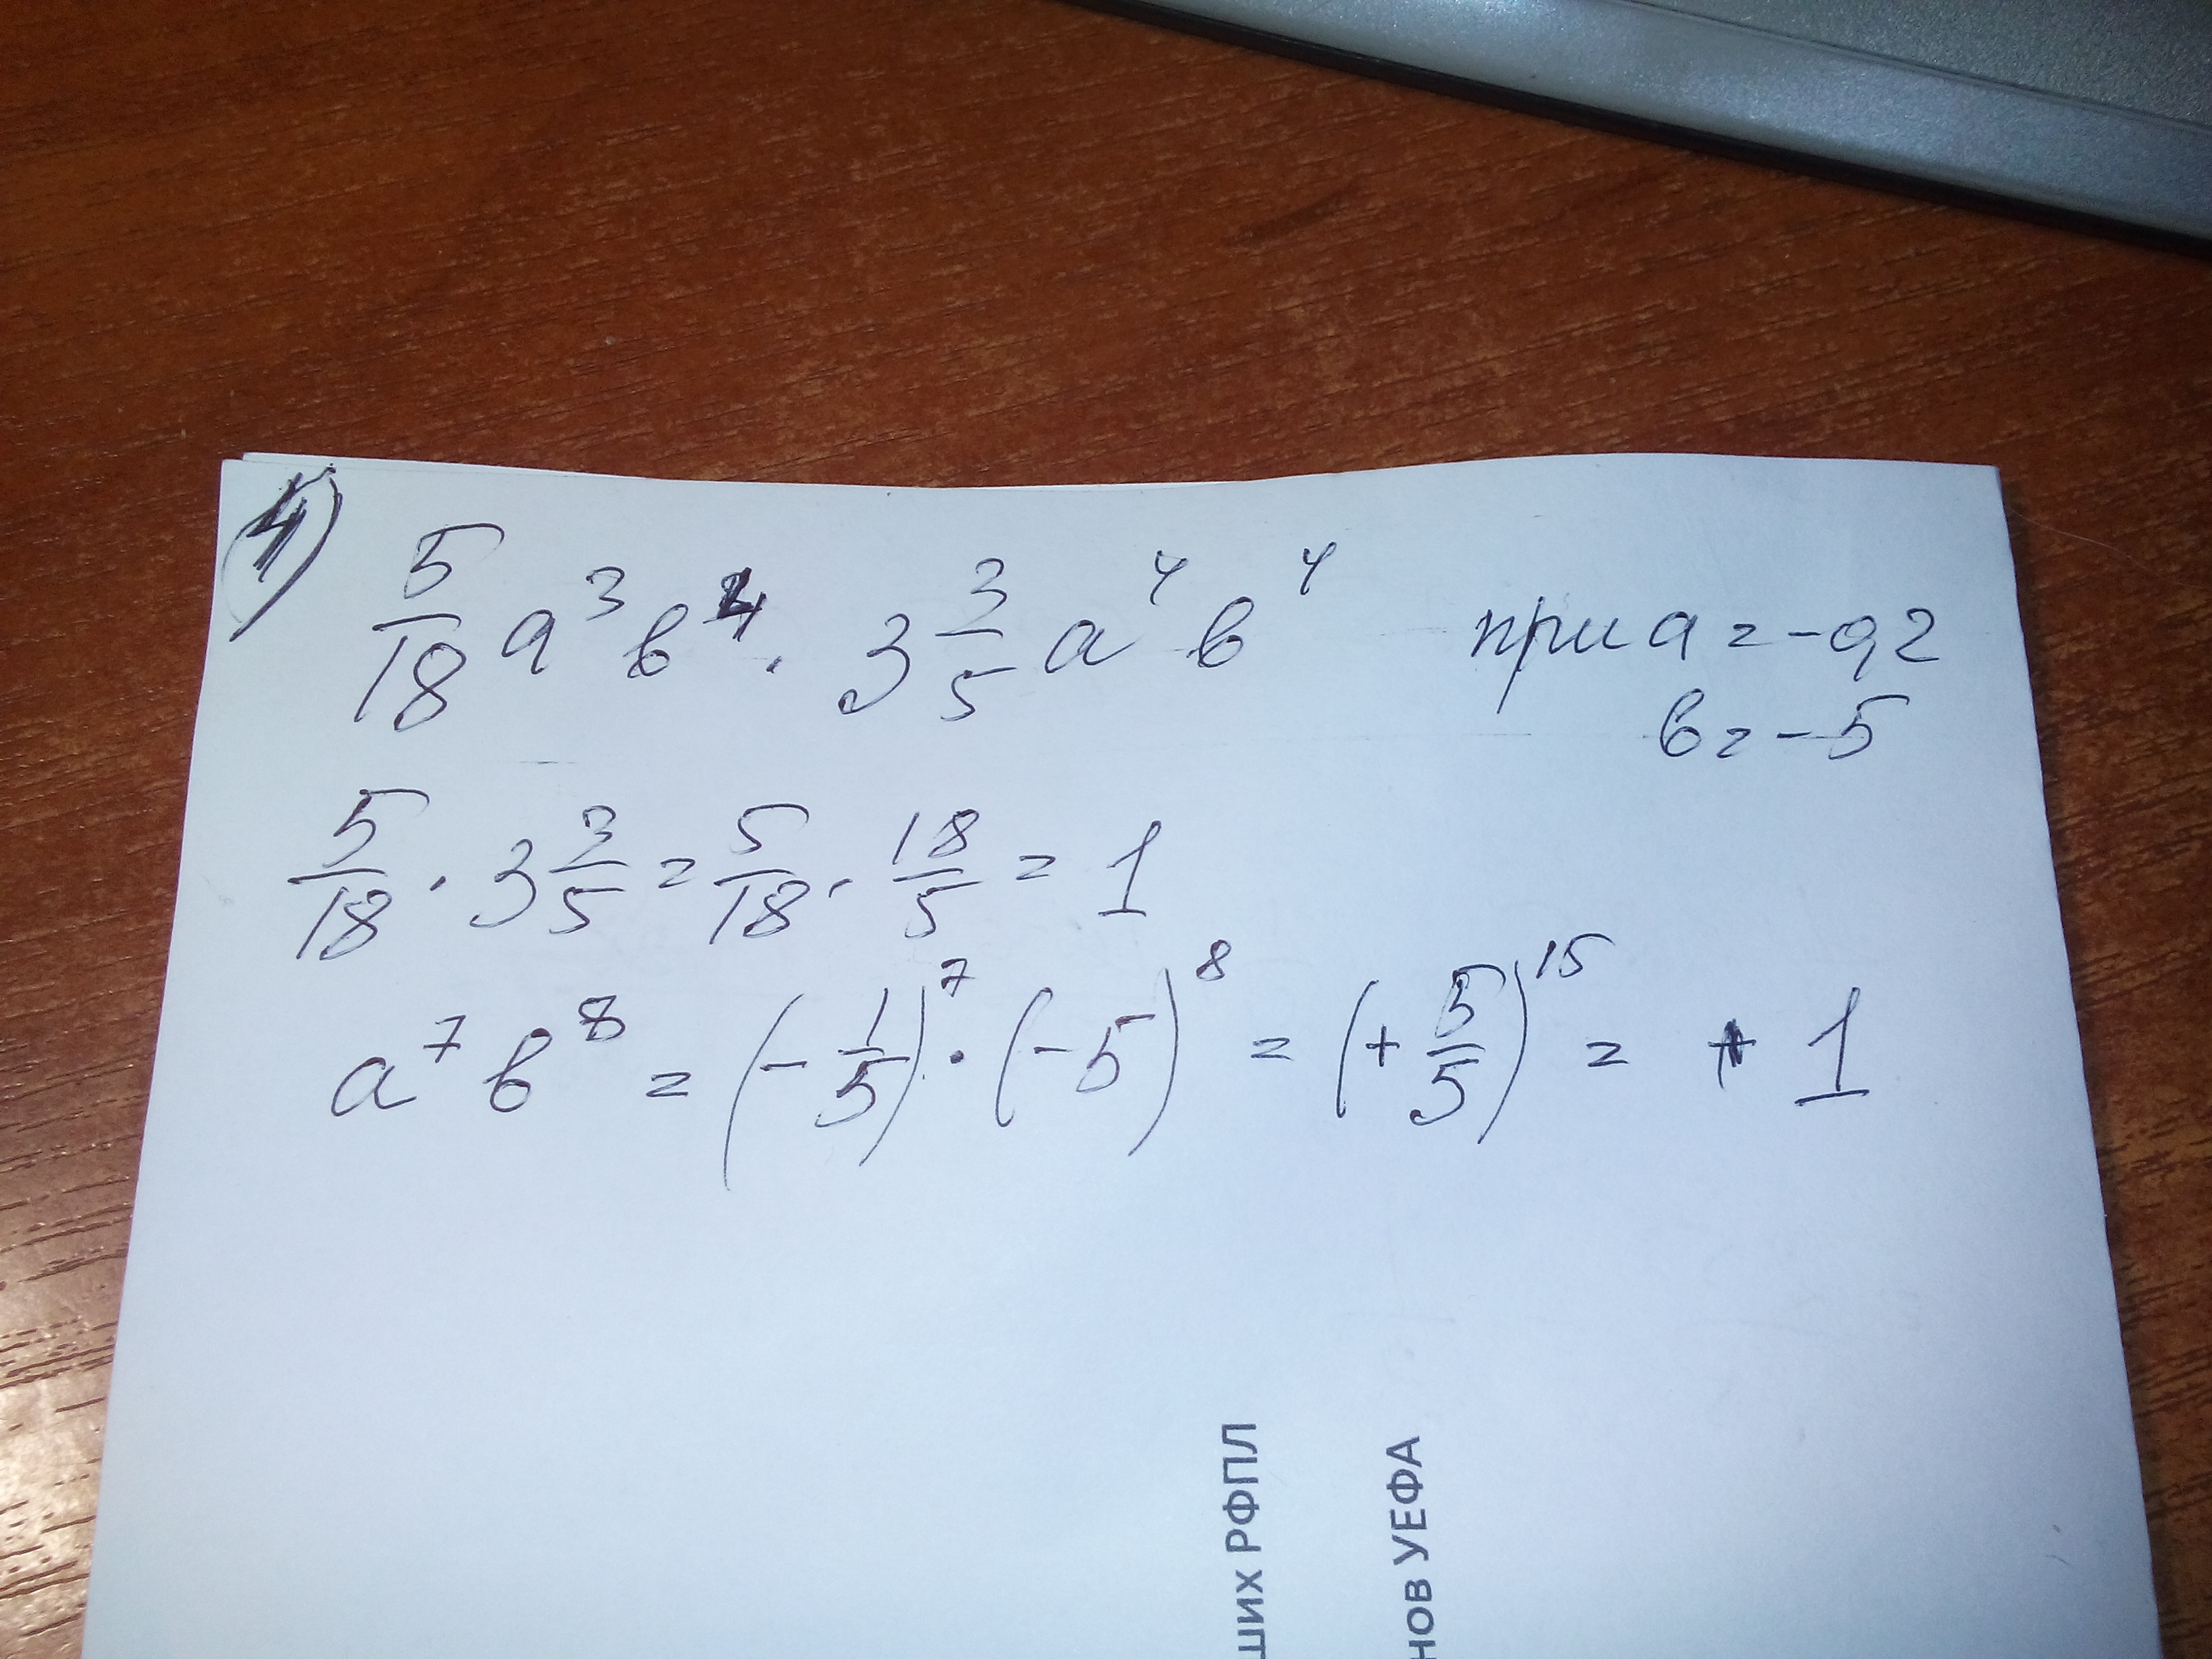 4) 5/18 a³ в⁴ · 3 3/5 a⁴ в⁴ при a = -0,2
в = -5
5/18 · 3 3/5 = 5/18 · 18/5 = 1
a⁷ в⁸ = (-1/5)⁷ · (-5)⁸ = (+5/5)¹⁵ = + 1
ших РФПЛ
нов УЕФА